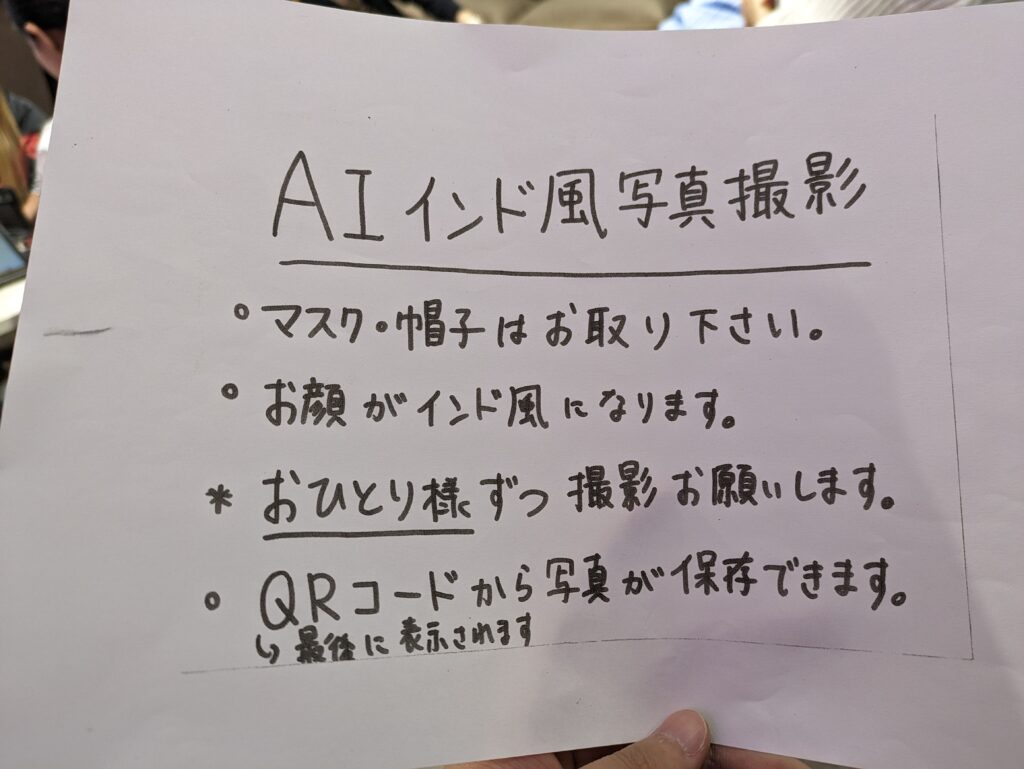 AIインド風写真撮影
° マスク・帽子はお取り下さい。
° お顔がインド風になります。
* おひとり様ずつ撮影お願いします。
° QRコードから写真が保存できます。
↳ 最後に表示されます